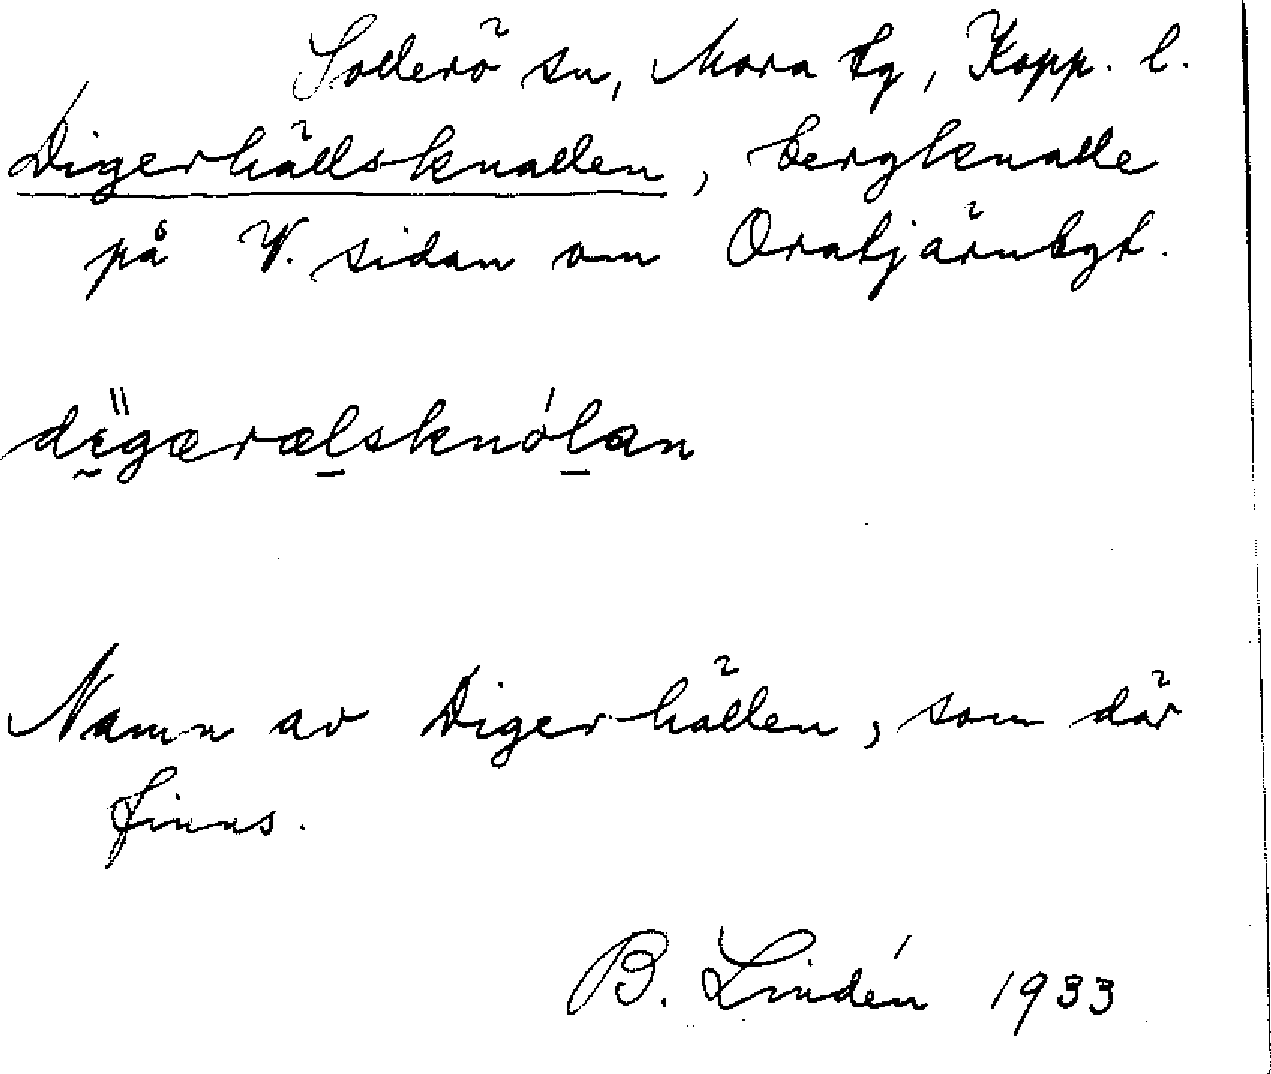 Sollerö sn, Mora tg, Kopp. l.
Digerhällsknallen, bergknalle
på V. sidan om Oratjärnbgt.
dïgærælsknólan
Namn av Digerhällen, som där
finns.
B. Lindén 1933